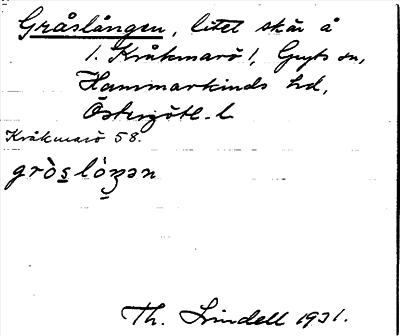 Gråslången, litet skär å
1. Kråkmarö 1, Gryts sn,
Hammarkinds hd,
Östergötl. l.
Kråkmarö 58.
gròs̲lòŋən
Th. Lindell 1931.